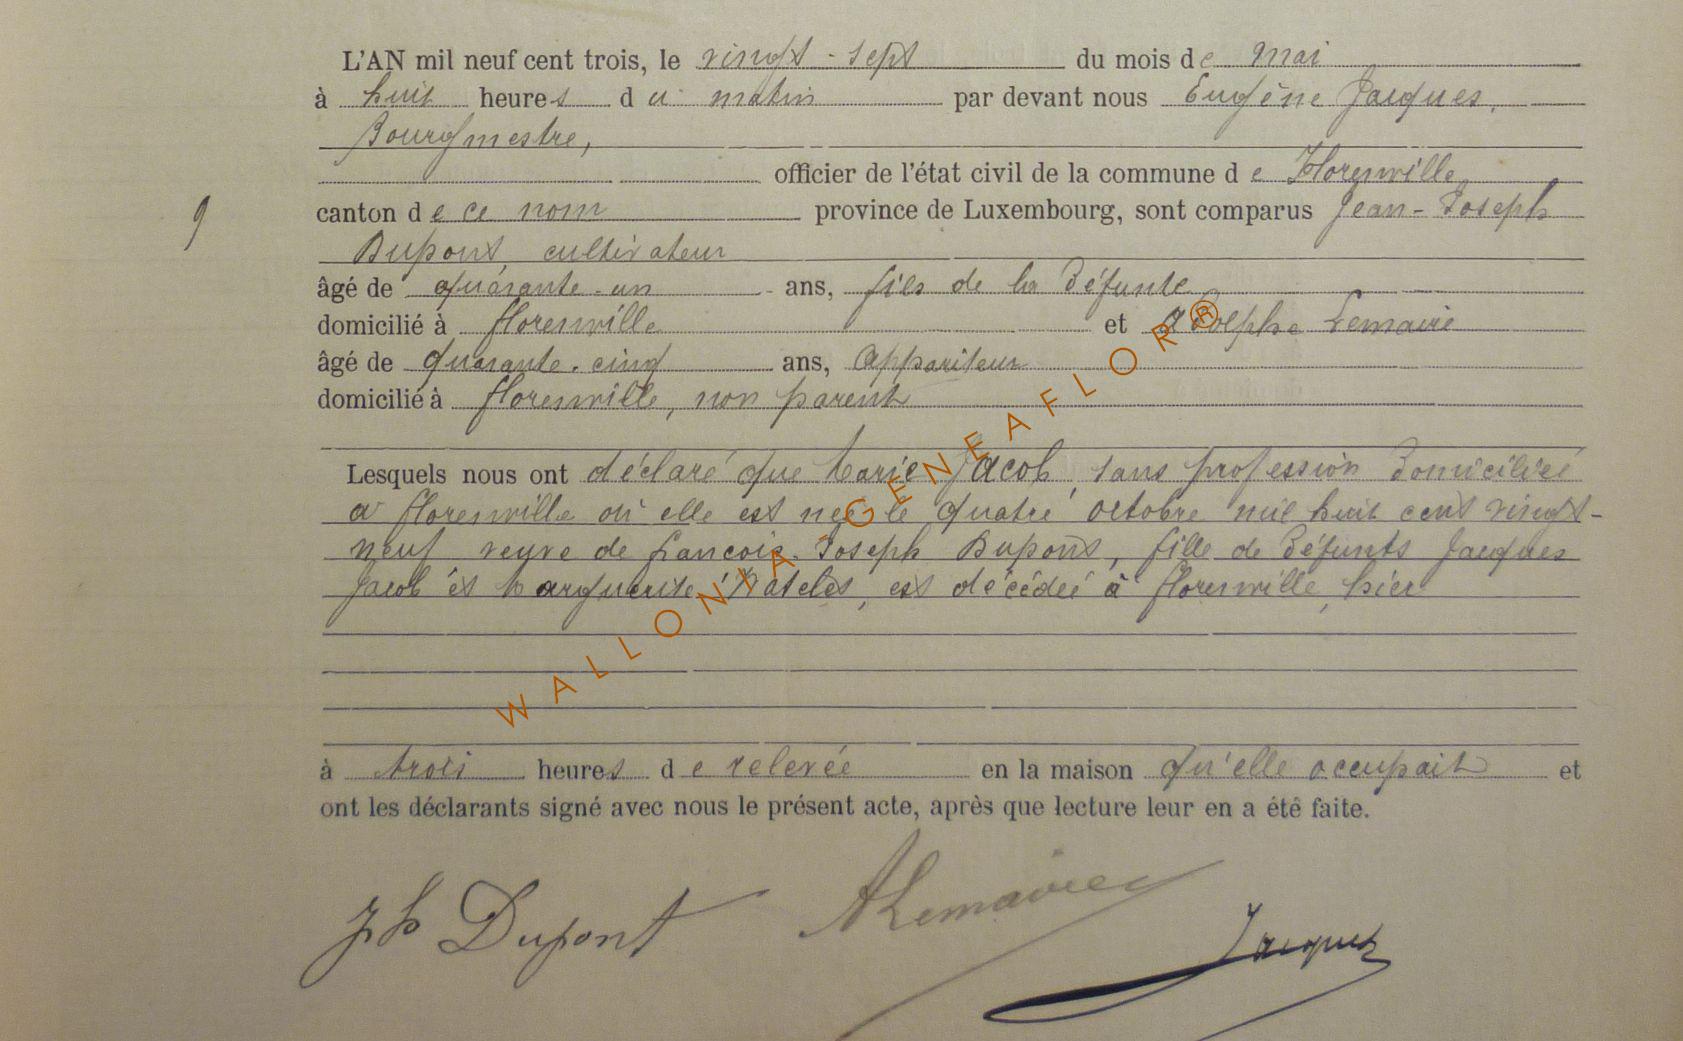 L'AN mil neuf cent trois, le vingt-sept du mois de mai
à huit heures du matin par devant nous Eugène Jacques,
Bourgmestre,
officier de l'état civil de la commune de Florenville
9 canton de ce nom province de Luxembourg, sont comparus Jean-Joseph
Dupont, cultivateur
âgé de quarante-un ans, fils de la défunte
domicilié à florenville et Adolphe Lemaire
âgé de quarante-cinq ans, Appariteur
domicilié à florenville, non parent
Lesquels nous ont déclaré que Marie Jacob, sans profession domiciliée
à florenville où elle est née le quatre octobre mil huit cent vingt-
neuf veuve de francois-Joseph Dupont, fille de défunts Jacques
Jacob et Marguerite, est décédée à florenville, hier
à trois heures de relevée en la maison qu'elle occupait et
ont les déclarants signé avec nous le présent acte, après que lecture leur en a été faite.
Jh Dupont ALemaire
Jacques
WALLONIA-GENEAFLOR®